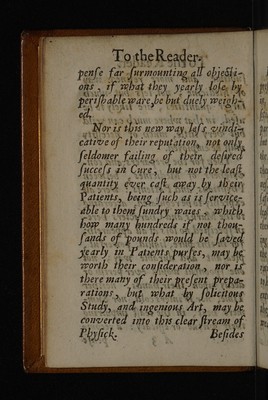 To the Reader.
pense far surmounting all objecti-
ons, if what they yearly lose by
perishable ware, be but duely weigh-
ed.
Nor is this new way less vindi-
cative of their reputation, not only
seldomer failing of their desired
success in Cure, but not the least
quantity ever cast away by their
Patients, being such as is service-
able to them sundry waies, which
how many hundreds if not thou-
sands of pounds would be saved
yearly in Patients purses, may be
worth their consideration, nor is
there many of their present prepa-
rations, but what by solicitous
Study, and ingenious Art, may be
converted into this clear stream of
Physick. Besides